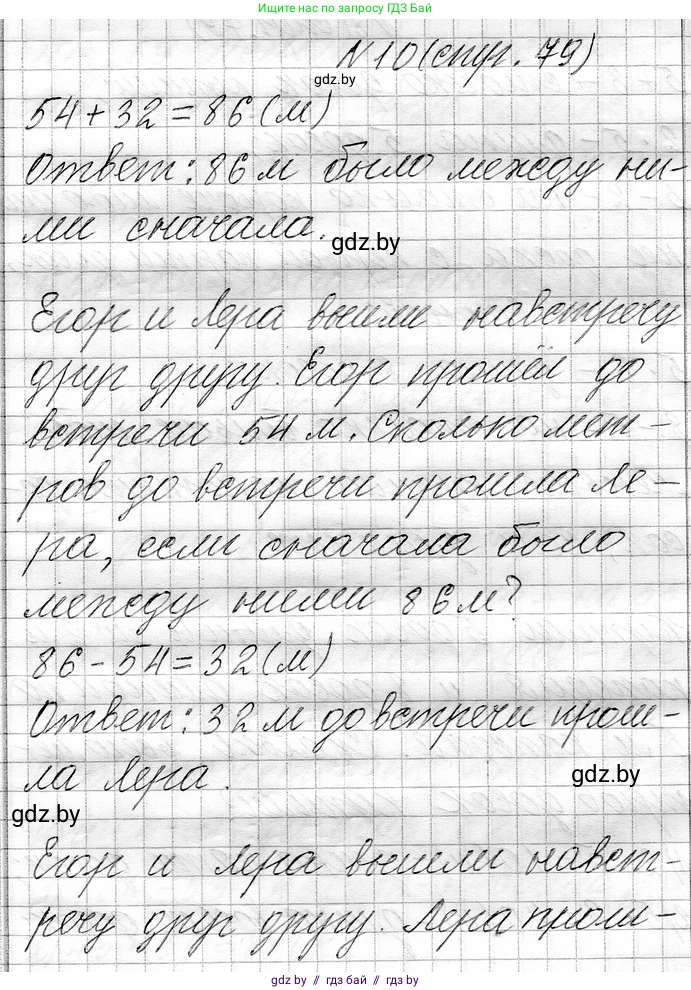 Ищите нас по запросу ГДЗ Бай
N 10 (стр. 79)
gdz.by
54 + 32 = 86 (м)
Ответ: 86 м было между ни-
ми сначала.
gdz.by
Егор и Лера вышли навстречу
друг другу. Егор прошёл до
встречи 54 м. Сколько мет-
ров до встречи прошла Ле-
ра, если сначала было
между ними 86 м?
86 - 54 = 32 (м)
Ответ: 32 м до встречи прош-
ла Лера.
gdz.by
gdz.by
Егор и Лера вышли навст-
речу друг другу. Лера прош-
gdz by // гдз бай // гдз by